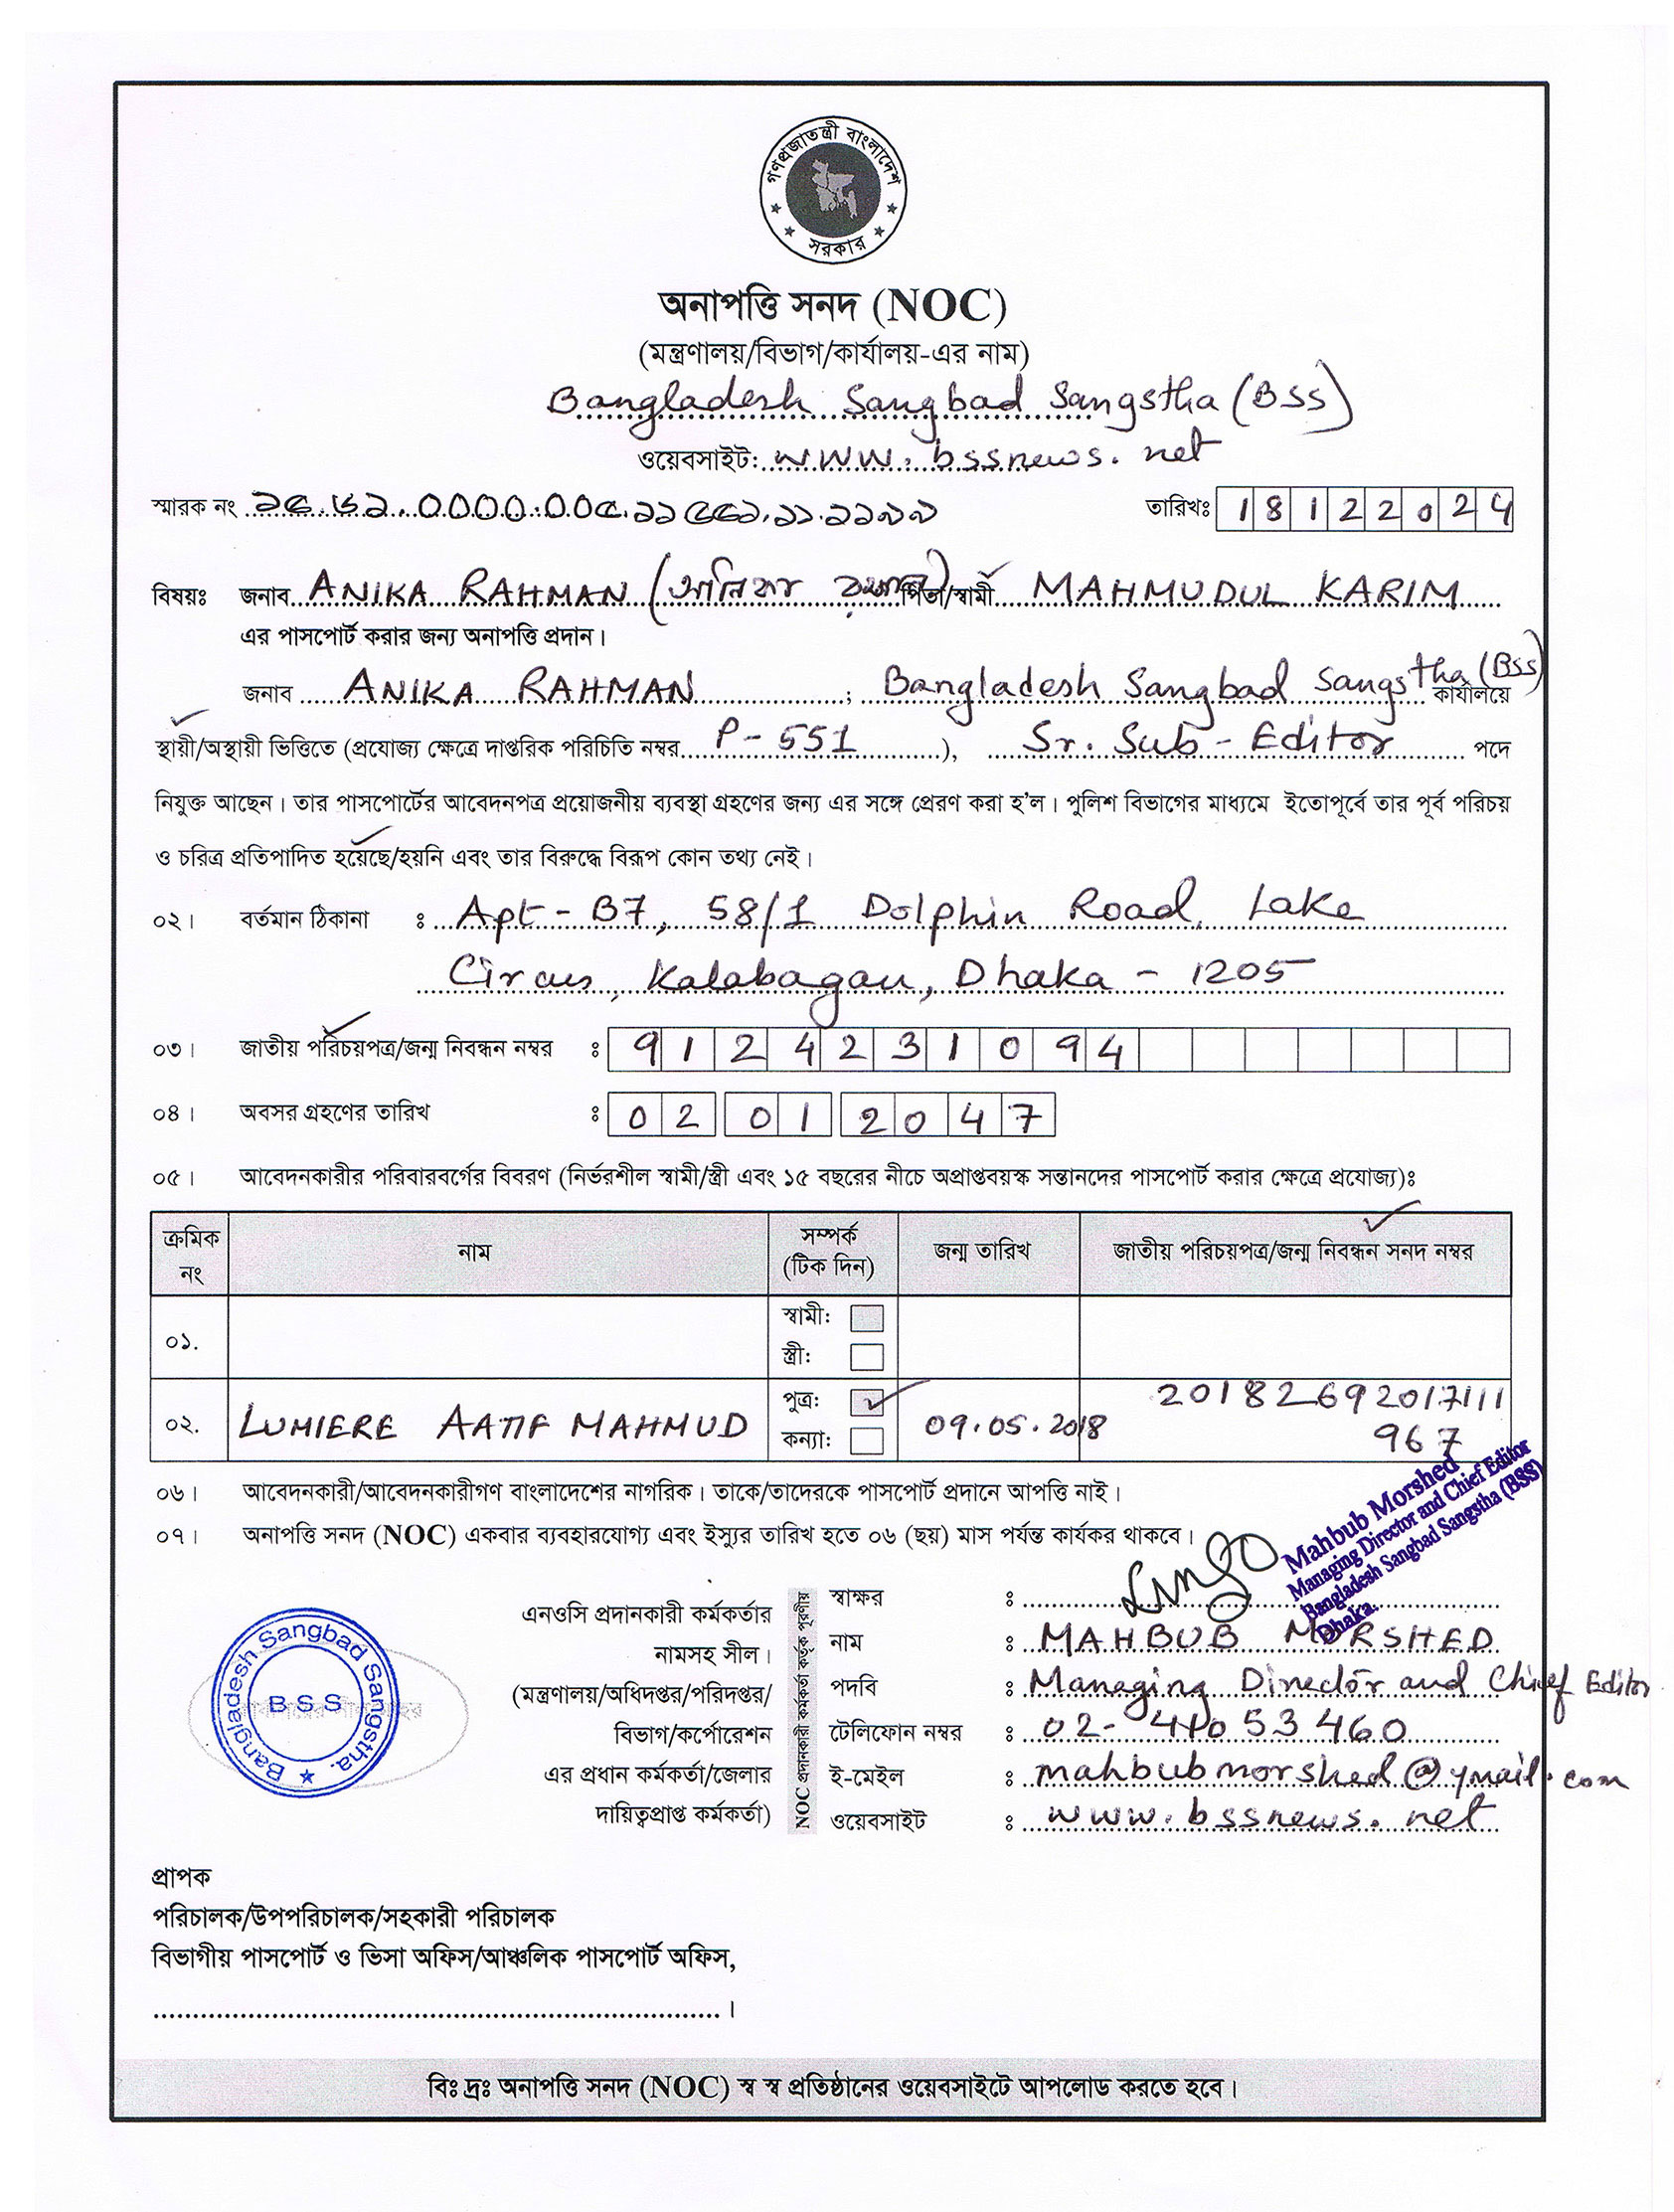 গণপ্রজাতন্ত্রী বাংলাদেশ
সরকার
অনাপত্তি সনদ (NOC)
(মন্ত্রণালয়/বিভাগ/কার্যালয়-এর নাম)
Bangladesh Sangbad Sangstha (BSS)
ওয়েবসাইট: www.bssnews.net
স্মারক নং
তারিখঃ 18122024
বিষয়ঃ জনাব ANIKA RAHMAN ( পিতা/স্বামী MAHMUDUL KARIM
এর পাসপোর্ট করার জন্য অনাপত্তি প্রদান।
জনাব ANIKA RAHMAN ; Bangladesh Sangbad Sangstha (BSS) কার্যালয়ে
স্থায়ী/অস্থায়ী ভিত্তিতে (প্রযোজ্য ক্ষেত্রে দাপ্তরিক পরিচিতি নম্বর P-551 ), Sr. Sub-Editor পদে
নিযুক্ত আছেন। তার পাসপোর্টের আবেদনপত্র প্রয়োজনীয় ব্যবস্থা গ্রহণের জন্য এর সঙ্গে প্রেরণ করা হ'ল। পুলিশ বিভাগের মাধ্যমে ইতোপূর্বে তার পূর্ব পরিচয়
ও চরিত্র প্রতিপাদিত হয়েছে/হয়নি এবং তার বিরুদ্ধে বিরূপ কোন তথ্য নেই।
০২। বর্তমান ঠিকানা : Apt-B7, 58/1 Dolphin Road, Lake
Circus, Kalabagan, Dhaka-1205
০৩। জাতীয় পরিচয়পত্র/জন্ম নিবন্ধন নম্বর ঃ 9124231094
০৪। অবসর গ্রহণের তারিখ ঃ 02 01 2047
০৫। আবেদনকারীর পরিবারবর্গের বিবরণ (নির্ভরশীল স্বামী/স্ত্রী এবং ১৫ বছরের নীচে অপ্রাপ্তবয়স্ক সন্তানদের পাসপোর্ট করার ক্ষেত্রে প্রযোজ্য)ঃ
ক্রমিক নং নাম সম্পর্ক (টিক দিন) জন্ম তারিখ জাতীয় পরিচয়পত্র/জন্ম নিবন্ধন সনদ নম্বর
০১. স্বামী:
স্ত্রী:
০২. LUMIERE AATIF MAHMUD পুত্র: 09.05.2018 20182692017111
কন্যা: 967
০৬। আবেদনকারী/আবেদনকারীগণ বাংলাদেশের নাগরিক। তাকে/তাদেরকে পাসপোর্ট প্রদানে আপত্তি নাই।
০৭। অনাপত্তি সনদ (NOC) একবার ব্যবহারযোগ্য এবং ইস্যুর তারিখ হতে ০৬ (ছয়) মাস পর্যন্ত কার্যকর থাকবে।
Mahbub Morshed
Managing Director and Chief Editor
Bangladesh Sangbad Sangstha (BSS)
Dhaka.
Bangladesh Sangbad Sangstha.
BSS
এনওসি প্রদানকারী কর্মকর্তার
নামসহ সীল।
(মন্ত্রণালয়/অধিদপ্তর/পরিদপ্তর/
বিভাগ/কর্পোরেশন
এর প্রধান কর্মকর্তা/জেলার
দায়িত্বপ্রাপ্ত কর্মকর্তা)
NOC প্রদানকারী কর্মকর্তা কর্তৃক পূরণীয়
স্বাক্ষর ঃ
নাম ঃ MAHBUB MORSHED
পদবি ঃ Managing Director and Chief Editor
টেলিফোন নম্বর ঃ 02-41053460
ই-মেইল ঃ mahbubmorshed@ymail.com
ওয়েবসাইট ঃ www.bssnews.net
প্রাপক
পরিচালক/উপপরিচালক/সহকারী পরিচালক
বিভাগীয় পাসপোর্ট ও ভিসা অফিস/আঞ্চলিক পাসপোর্ট অফিস,
বিঃ দ্রঃ অনাপত্তি সনদ (NOC) স্ব স্ব প্রতিষ্ঠানের ওয়েবসাইটে আপলোড করতে হবে।